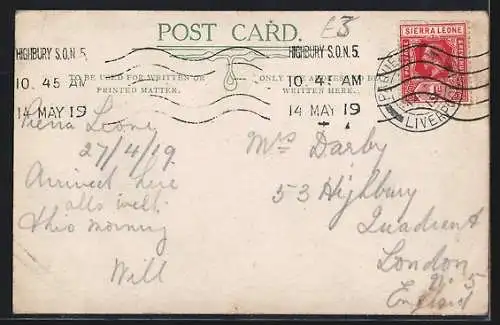 POST CARD.
£3
HIGHBURY S.O.N.5.
10. 45 AM
14 MAY 19
HIGHBURY S.O.N.5.
10. 45 AM
14 MAY 19
TO BE USED FOR WRITTEN OR
PRINTED MATTER.
ONLY THE ADDRESS TO BE
WRITTEN HERE.
SIERRA LEONE
PAQUE
LIVERPO
Sierra Leone
27/4/19
Arrived here
alls well
this morning
Will
Mrs Darby
53 Highbury
Quadrent
London
N. 5
England